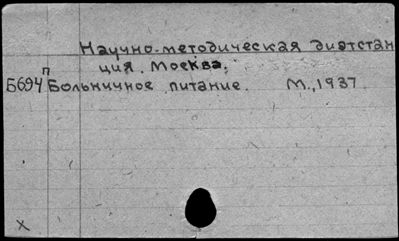 Научно-методическая диэтстан
ция. Москва.
П
Б694 Больничное питание. М., 1937
X